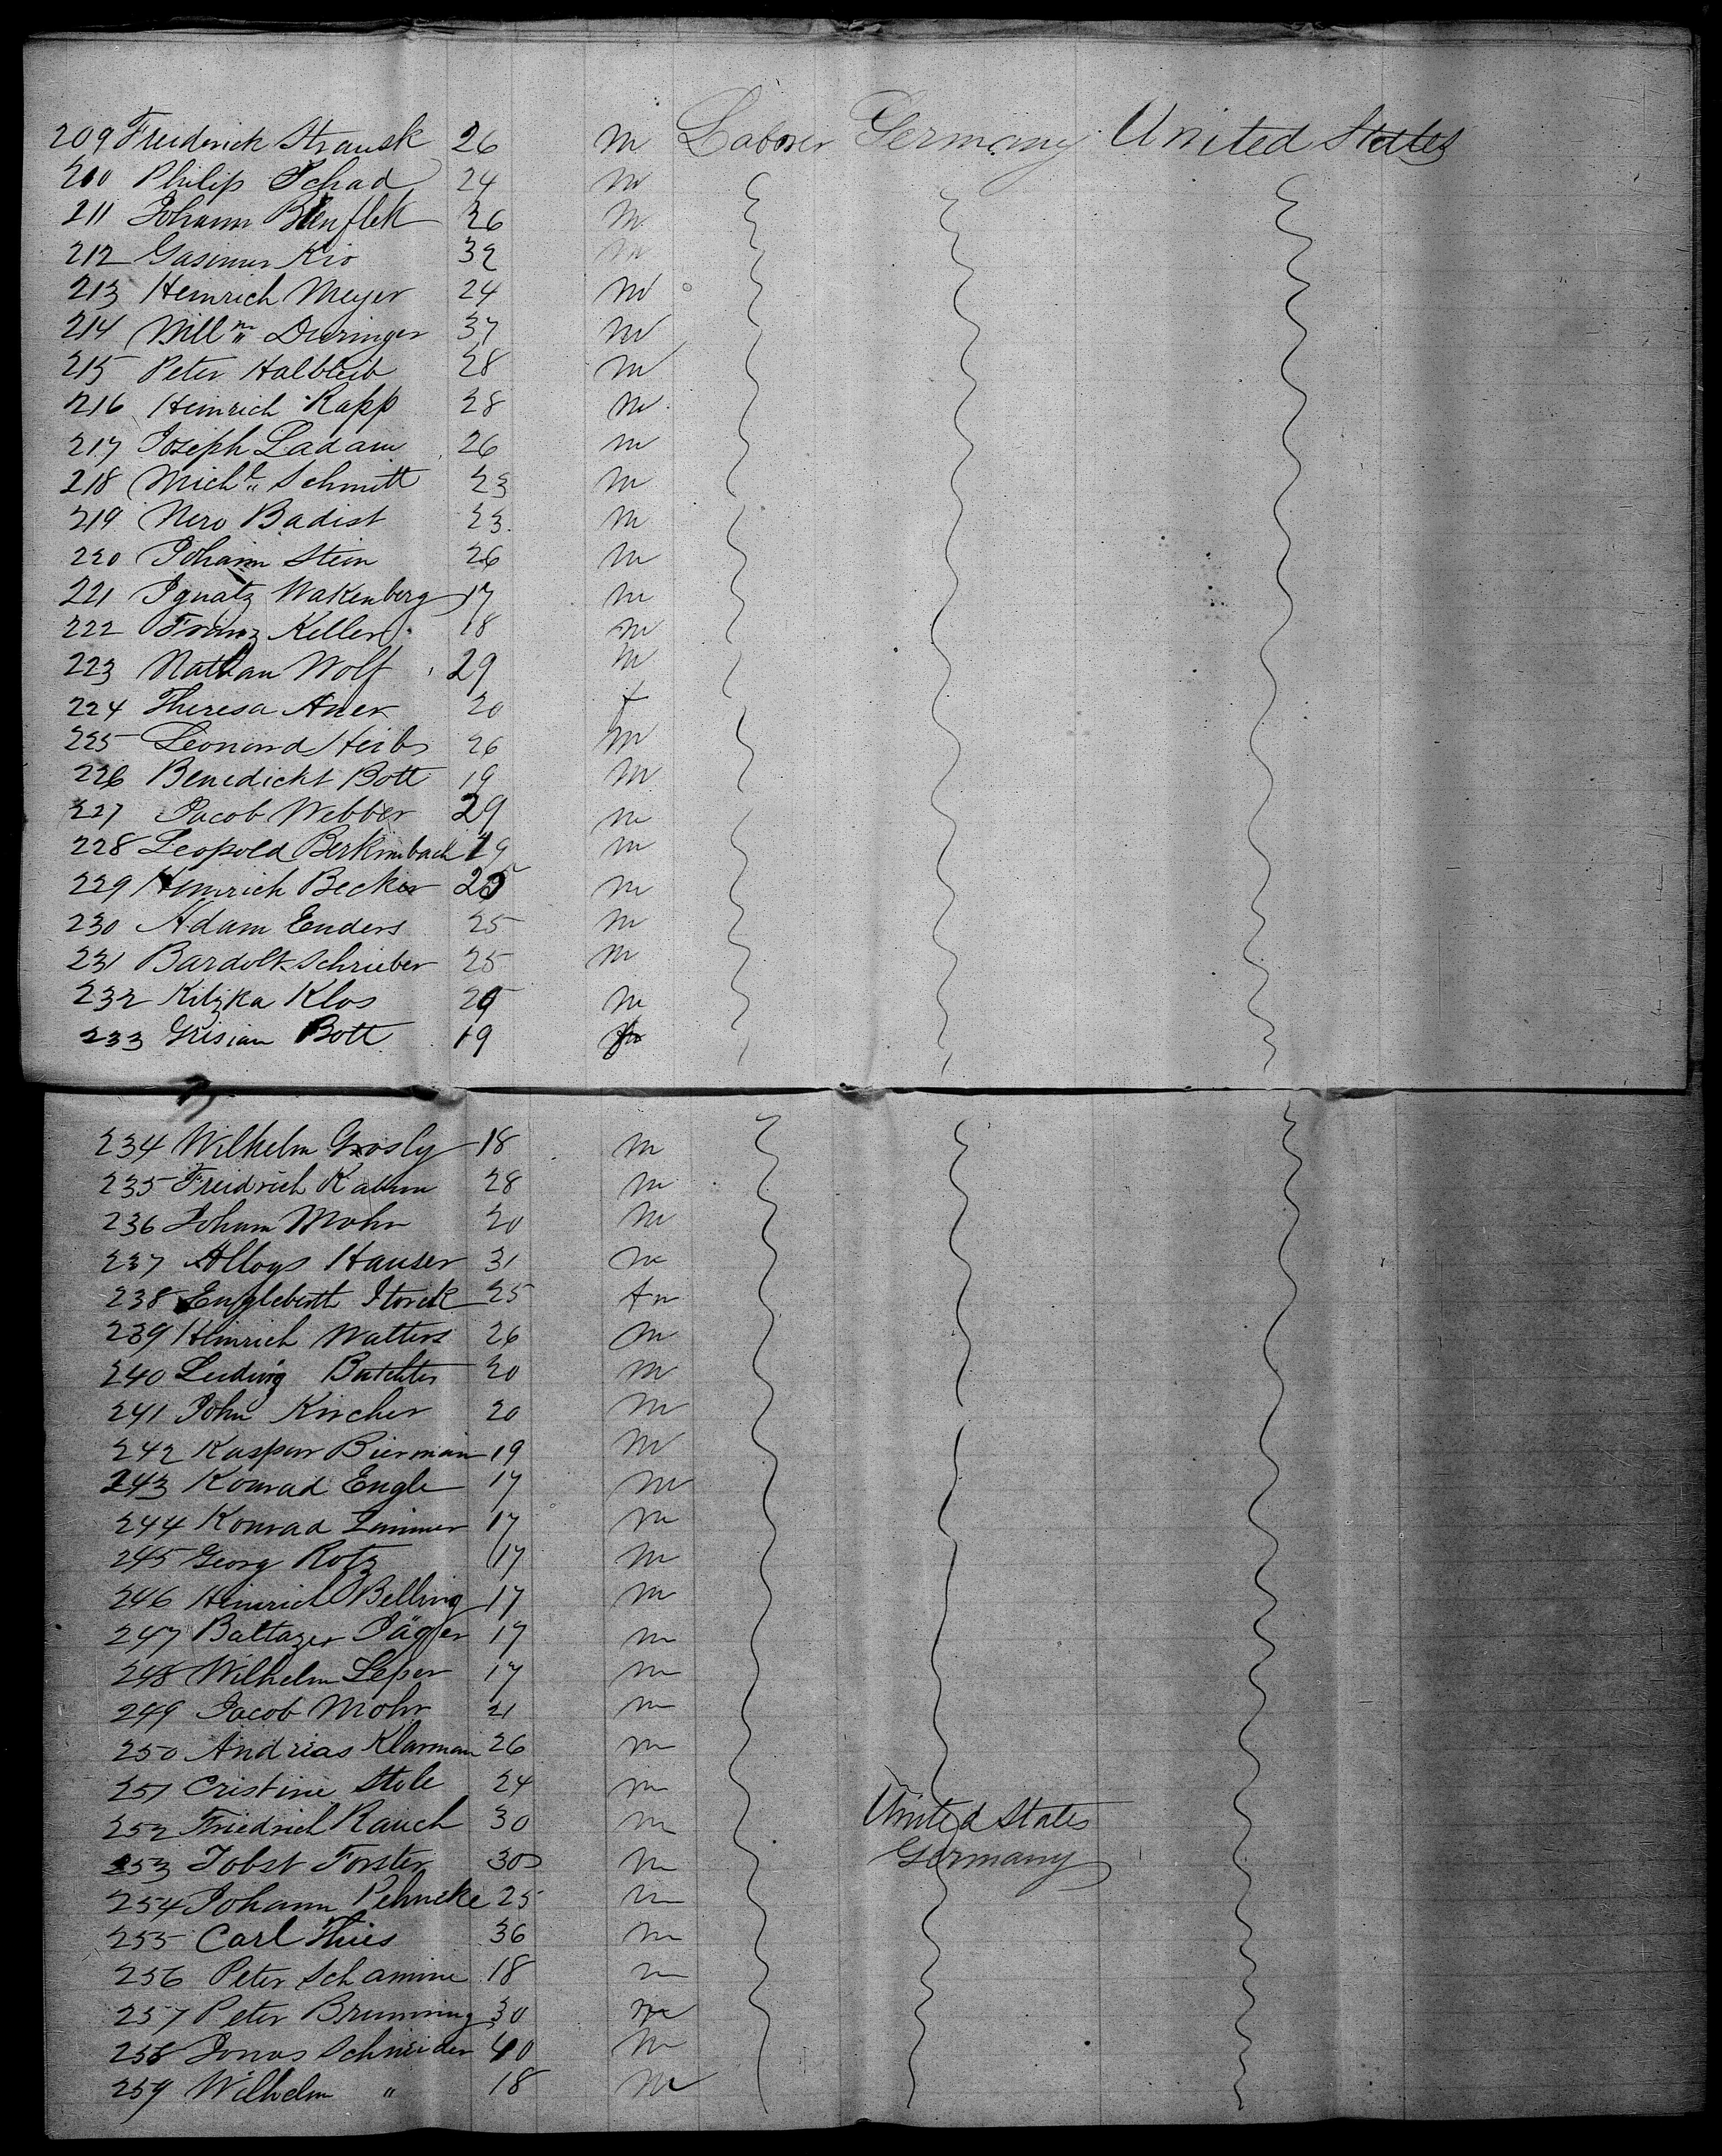 209 Freiderick Strausk 26 m Laborer Germany United States
210 Philip Schad 24 m
211 Johann 26 m
212 Gasimer Kio 32 m
213 Heinrich Meyer 24 m
214 Will m " Duringer 37 m
215 Peter Halbleib 28 m
216 Heinrich Rapp 28 m
217 Joseph Ladam 26 m
218 Mich l " Schmitt 23 m
219 Nero Badist 23 m
220 Johann Stein 26 m
221 Ignatz Wakenberg 17 m
222 Franz Keller 18 m
223 Nathan Wolf 29 m
224 Theresa Auer 20 f
225 Leonard Heibs 26 m
226 Benedickt Bott 19 m
227 Jacob Webber 29 m
228 Leopold Berkimbach 19 m
229 Heinrich Becker 25 m
230 Adam Enders 25 m
231 Bardolt Schrieber 25 m
232 Kilzka Klos m
233 Grisian Bott 19
234 Wilhelm Grosly 18 m
235 Freidrich Kamm 28 m
236 Johann Mohr 20 m
237 Alloys Hauser 31 m
238 Engleberth Storck 25 m
239 Heinrich Walters 26 m
240 Ludwig 20 m
241 John Kircher 20 m
242 Kaspar Bierman 19 m
243 Konrad Engle 17 m
244 Konrad Zimmer 17 m
245 Georg Rotz 17 m
246 Heinrich Belling 17 m
247 Baltazer Jäger 17 m
248 Wilhelm Leper 17 m
249 Jacob Mohr 21 m
250 Andreas Klarman 26 m
251 Cristine Stole 24 m
252 Friedrich Rauch 30 m United States
253 Jobst Forster 30 m Germany
254 Johann Pehncke 25 m
255 Carl Thies 36 m
256 Peter Schamme 18 m
257 Peter Brumming 30 m
258 Jonas Schneider 40 m
259 Wilhelm " 18 m